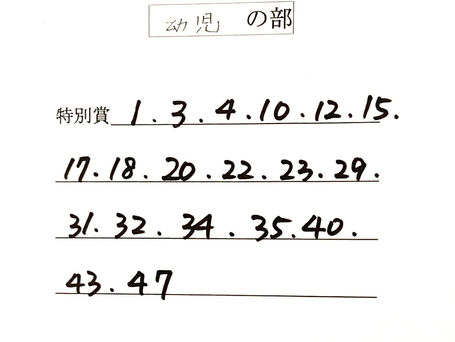 幼児 の部
特別賞 1.3.4.10.12.15.
17.18.20.22.23.29.
31.32.34.35.40.
43.47